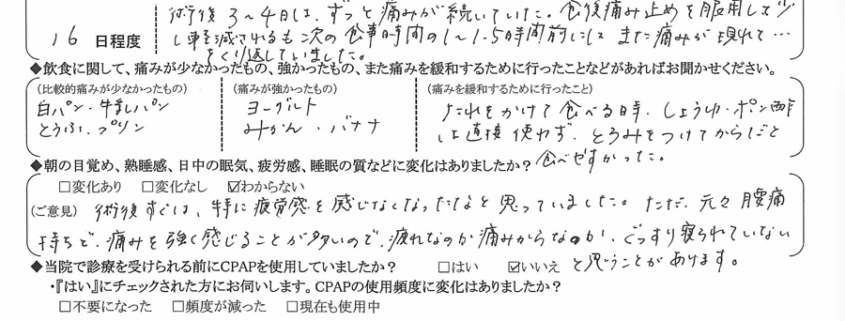 術後3〜4日は、ずっと痛みが続いていた。食後痛み止めを服用して少
16 日程度 し軽減されるも次の食事時間の1〜1.5時間前にはまた痛みが現れて…
をくり返していました。
◆飲食に関して、痛みが少なかったもの、強かったもの、また痛みを緩和するために行ったことなどがあればお聞かせください。
(比較的痛みが少なかったもの) (痛みが強かったもの) (痛みを緩和するために行ったこと)
白パン・牛乳パン ヨーグルト たれをかけて食べる時、しょうゆ・ポン酢
とうふ、プリン みかん・バナナ は直接使わず、とろみをつけてからだと
食べやすかった。
◆朝の目覚め、熟睡感、日中の眠気、疲労感、睡眠の質などに変化はありましたか?
□変化あり □変化なし ☑わからない
(ご意見) 術後すぐは、特に疲労感を感じなくなったなと思っていました。ただ、元々腰痛
持ちで、痛みを強く感じることが多いので、疲れなのか痛みからなのか、ぐっすり寝られていない
と思うことがあります。
◆当院で診療を受けられる前にCPAPを使用していましたか? □はい ☑いいえ
・『はい』にチェックされた方にお伺いします。CPAPの使用頻度に変化はありましたか?
□不要になった □頻度が減った □現在も使用中